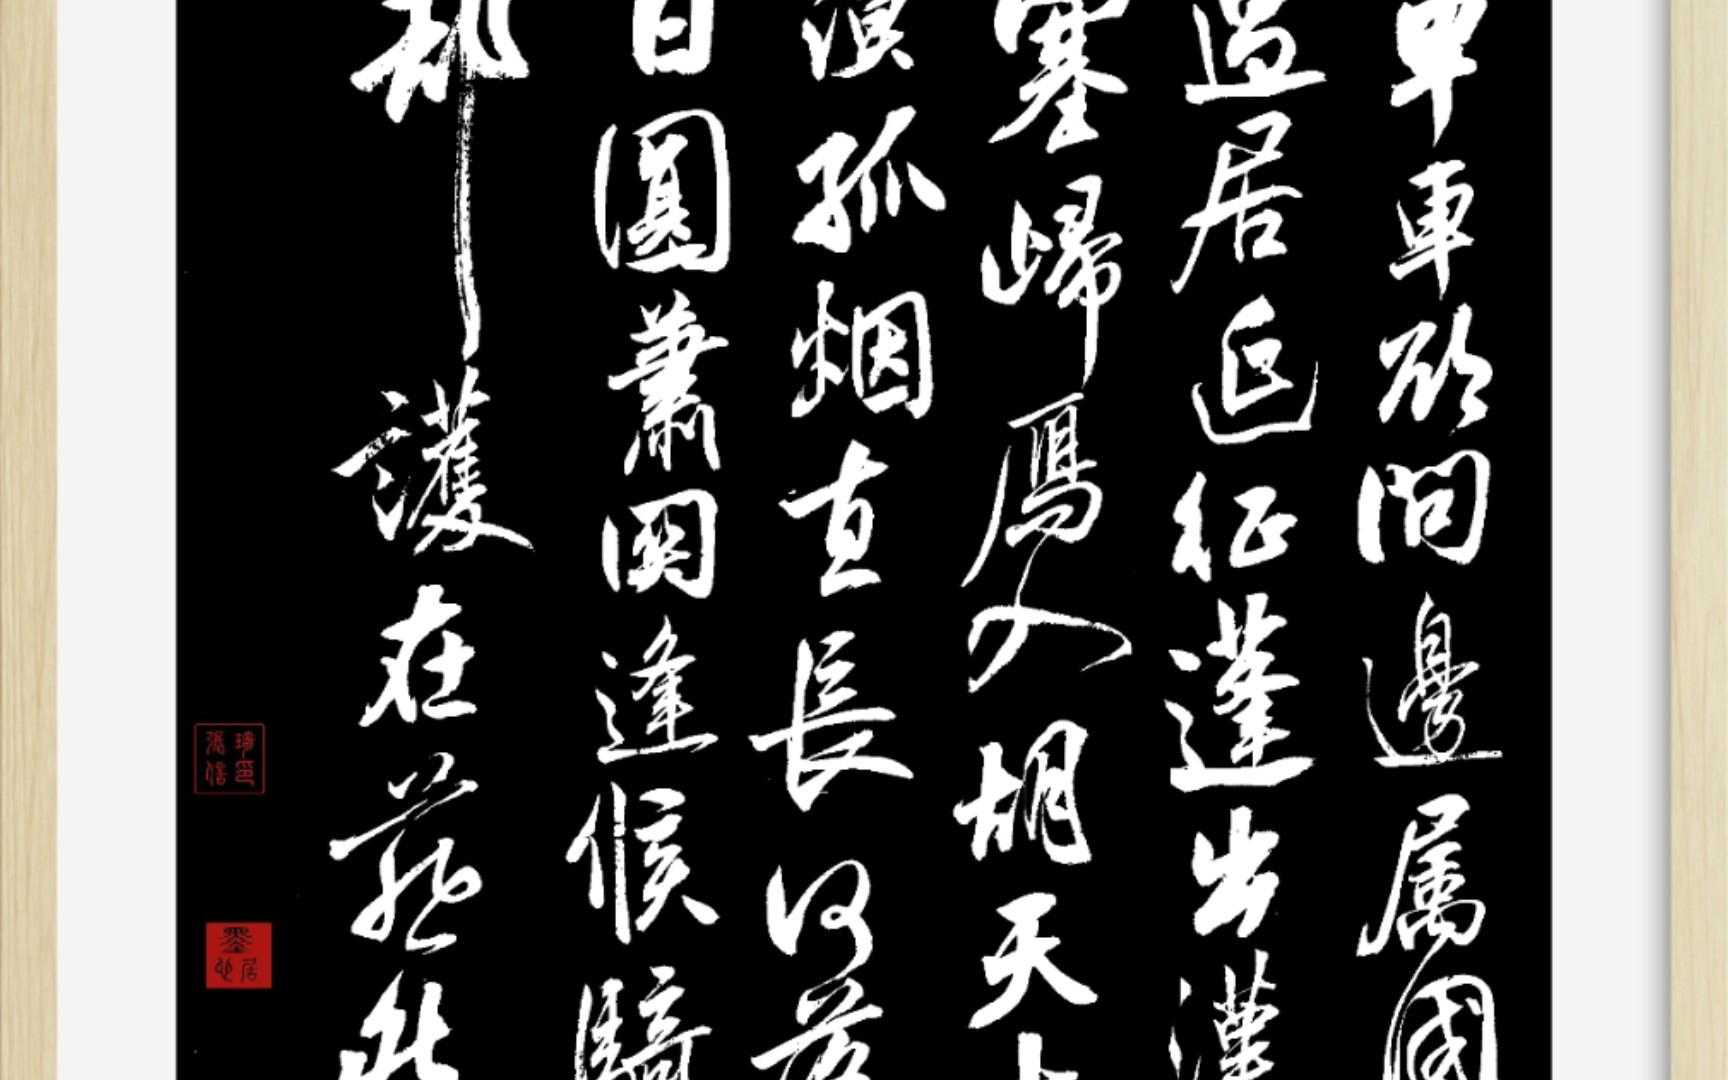 單車欲問邊屬國
過居延征蓬出漢
塞歸鴈入胡天
漠孤烟直長河落
日圓蕭關逢候騎
都護在燕然